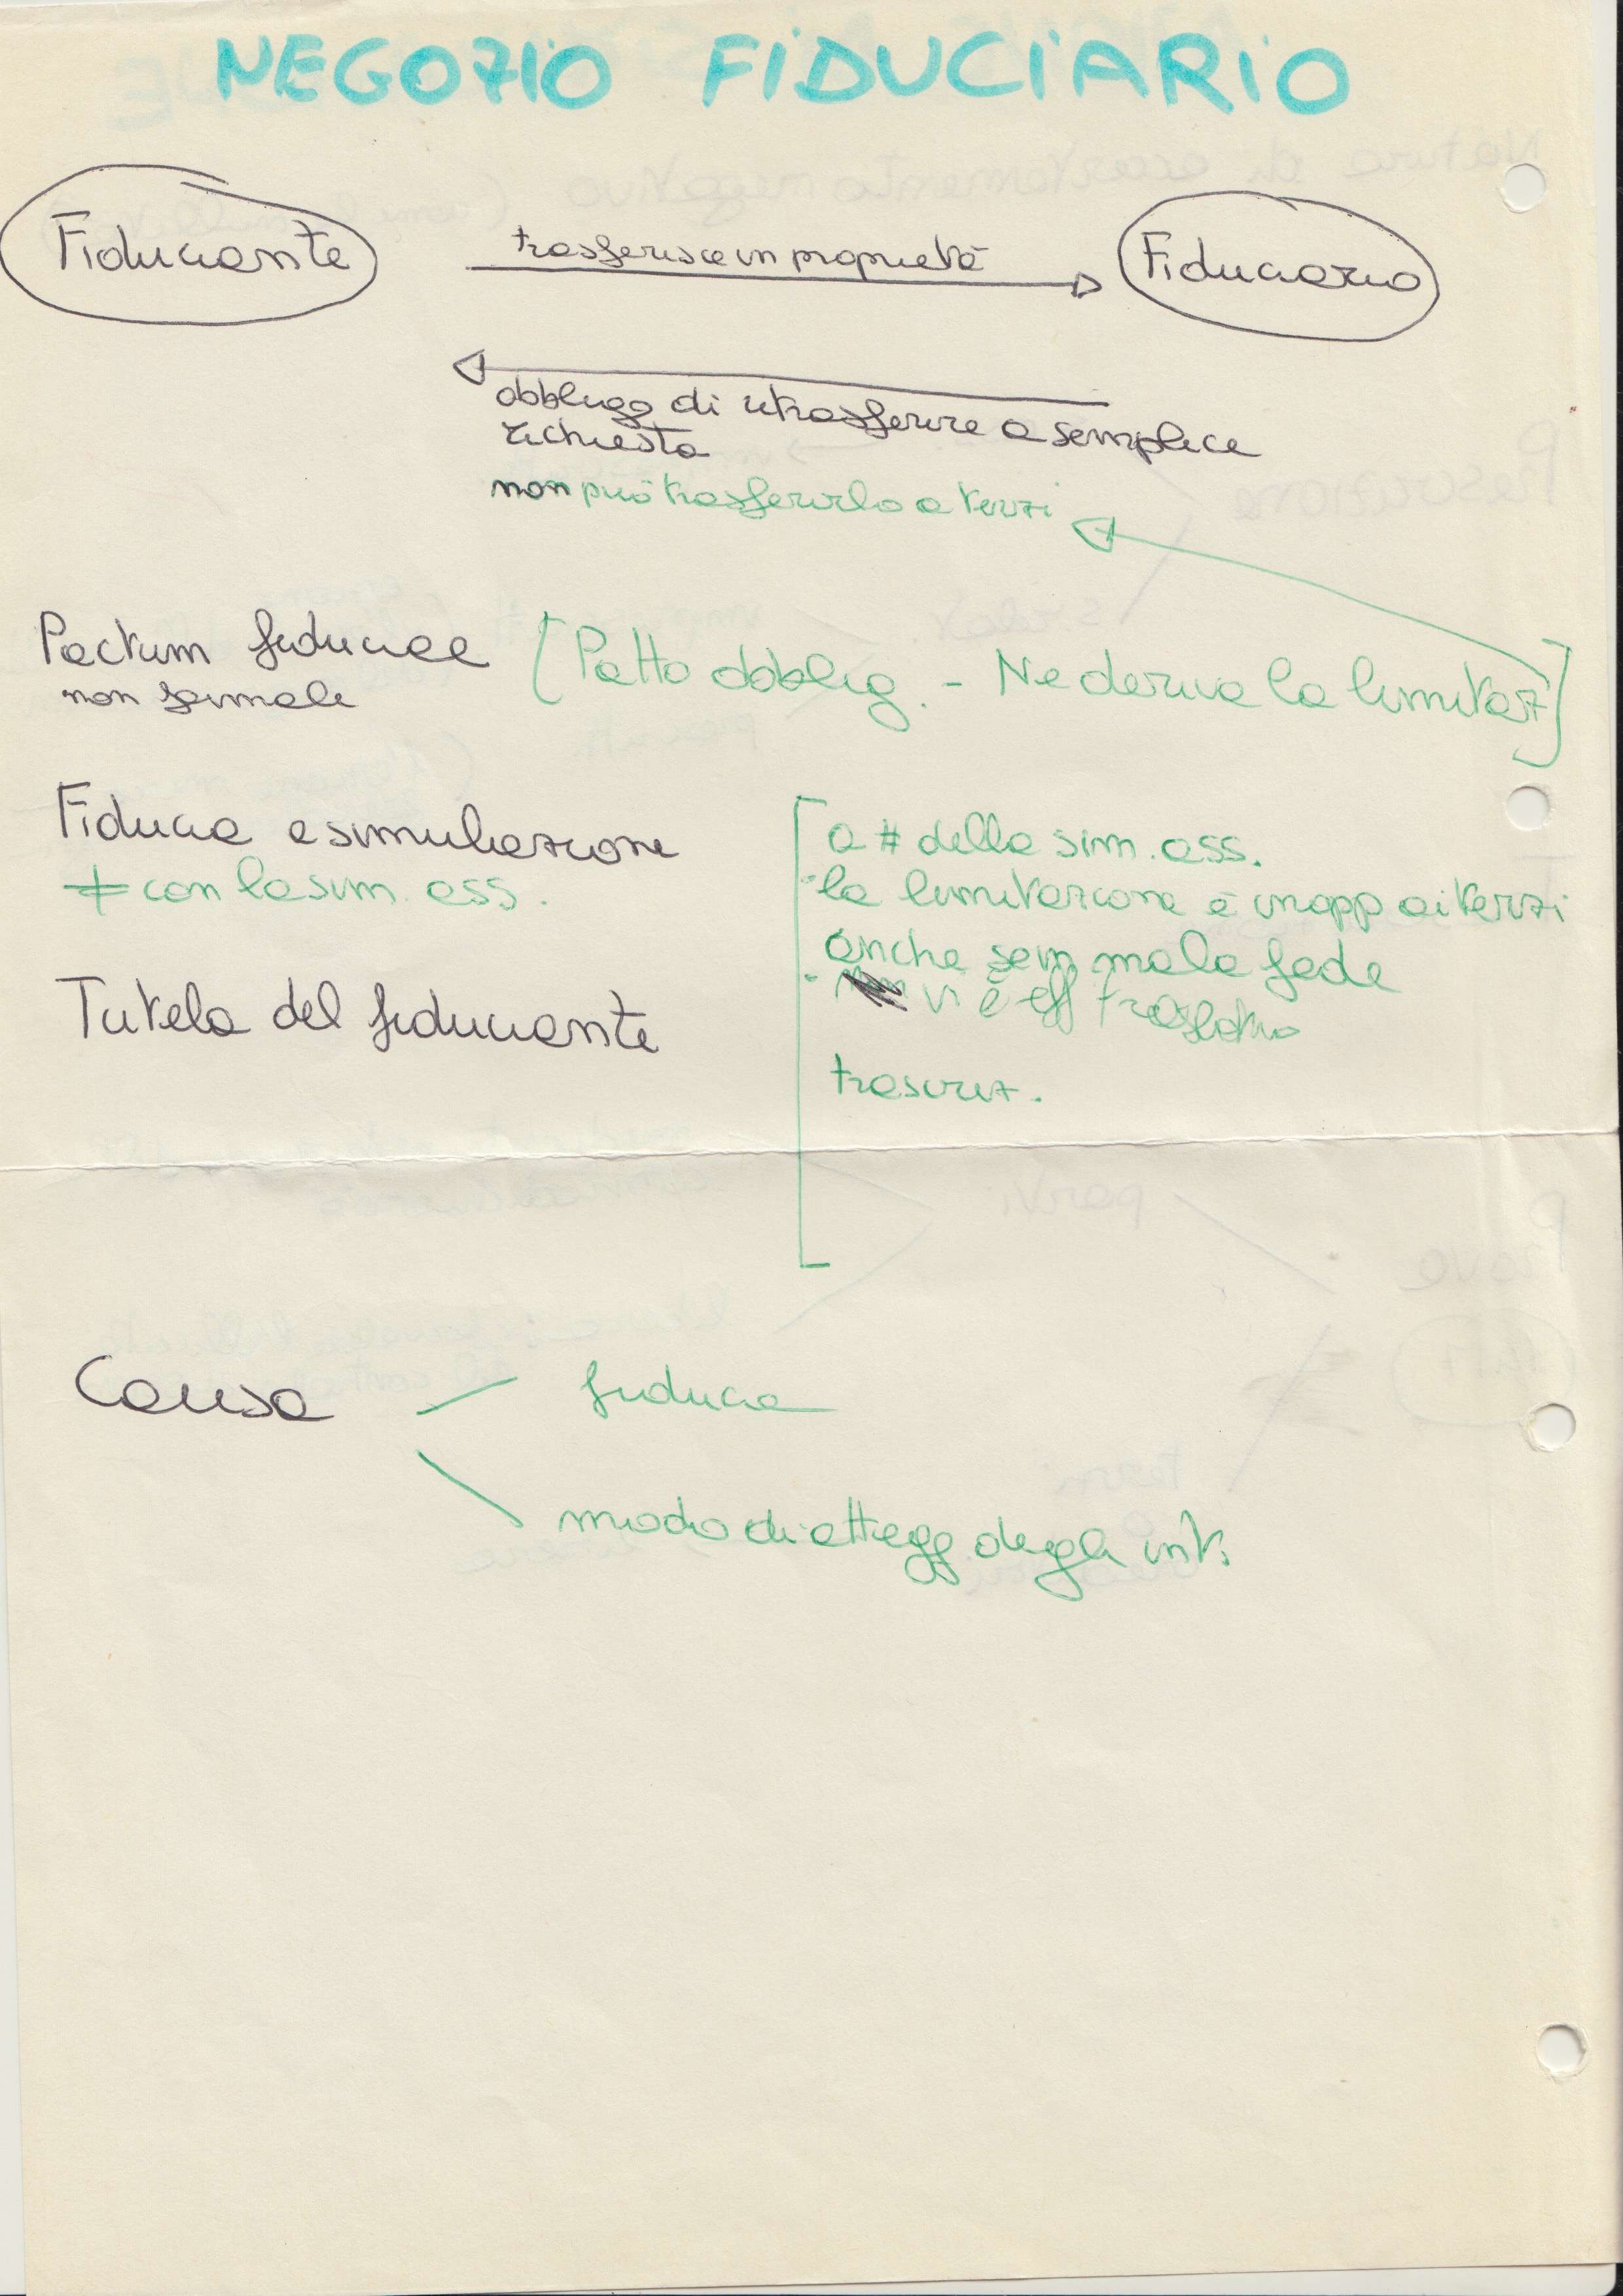 NEGOZIO FIDUCIARIO
Fiduciante
trasferisce in proprietà
Fiduciario
obbligo di ritrasferire a semplice
richiesta
non può trasferirlo a terzi
Pactum fiduciae
non formale
[Patto obblig. - Ne deriva la limitaz]
Fiducia e simulazione
≠ con la sim. ass.
a # della sim. ass.
- la limitazione è inopp ai terzi
anche se in mala fede
- vi è eff traslativo
trascriz.
Tutela del fiduciante
Causa
fiducia
modo di attegg. degli int.